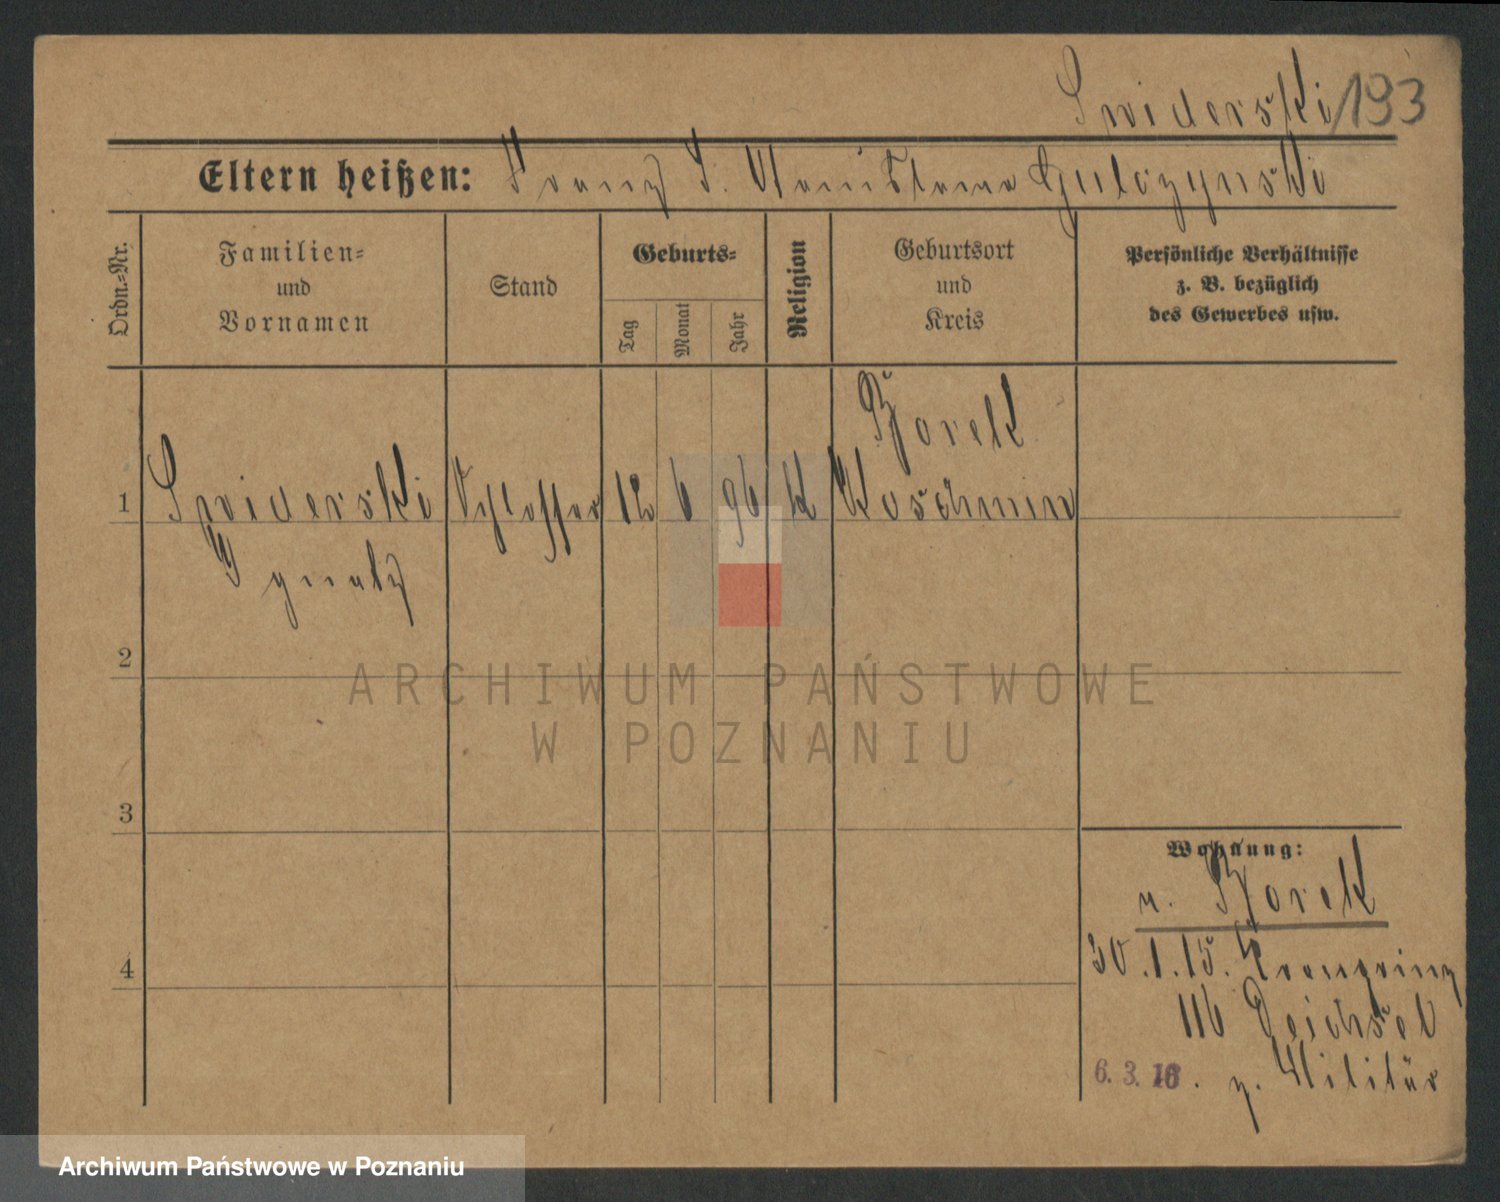 Swiderski/193
Eltern heißen: Franz S. Stanislawa Gulczynski
Ordn.-Nr.
Familien-
und
Vornamen
Stand
Geburts-
Tag
Monat
Jahr
Religion
Geburtsort
und
Kreis
Persönliche Verhältnisse
z. B. bezüglich
des Gewerbes usw.
Borek
1 Swiderski Schlosser 12 6 96 K Koschmin
Ignatz
2
3
4
Wohnung:
n. Borek
30.1.15. Kronprinz
116 Deichsel
6.3.16. z. Militär
ARCHIWUM PAŃSTWOWE
W POZNANIU
Archiwum Państwowe w Poznaniu